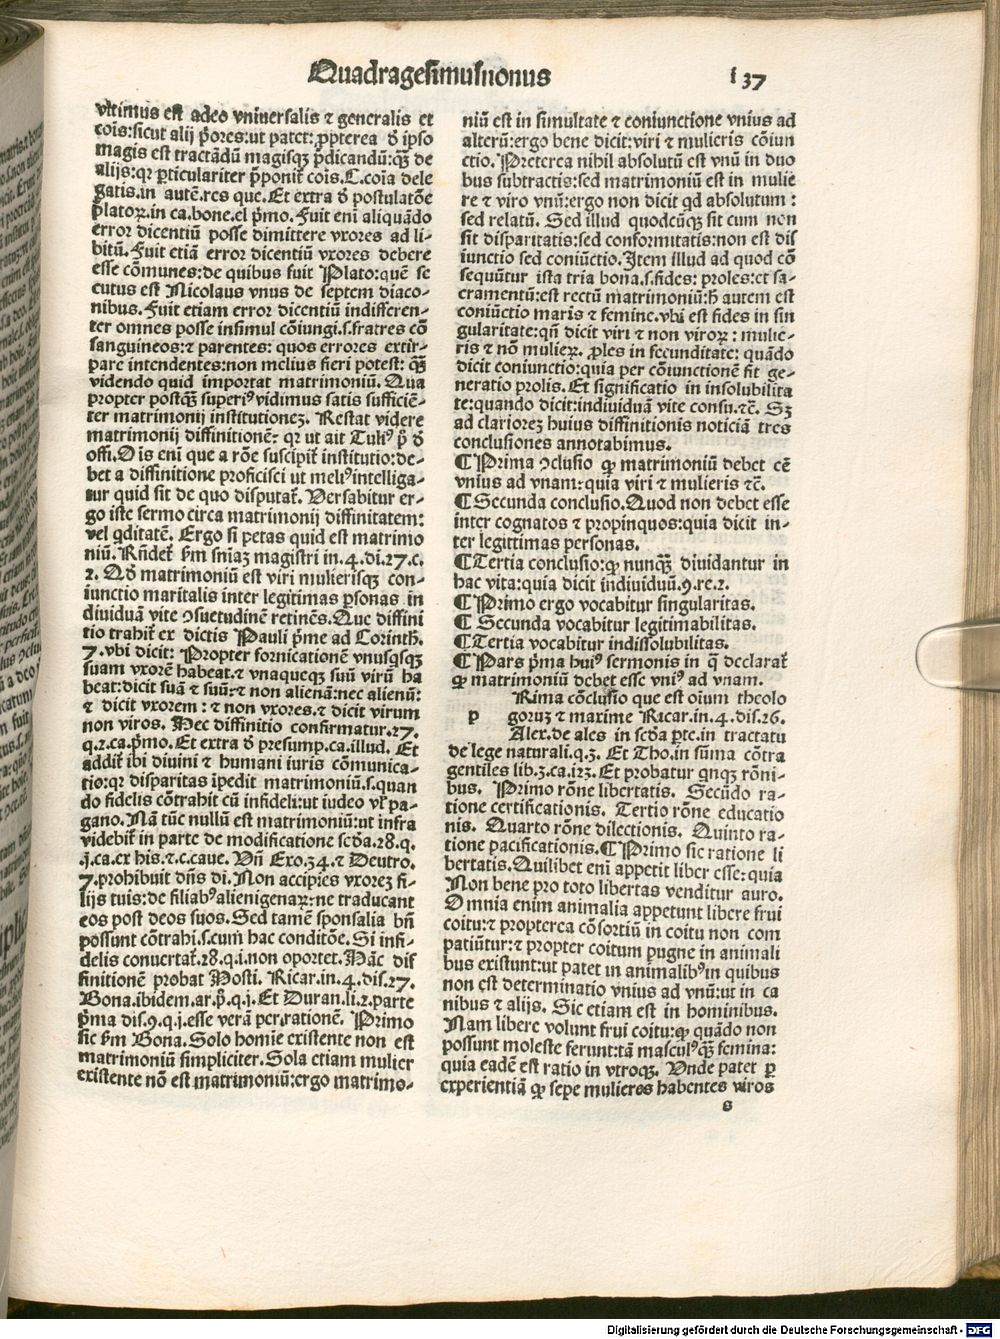 Quadragesimusnonus
137
vltimus est adeo vniuersalis ⁊ generalis et
cōis:sicut alij p̄ores:ut patet:p̱pterea đ ipso
magis est tractādū magisqꝫ p̄dicandū:qꝫ̄ de
alijs:qꝛ ꝑticulariter p̄ponit̄ cōis.C.coīa dele
gatis.in autē.res que.Et extra đ postulatōe
p̄latoꝝ.in ca.bone.el p̄mo.Fuit eni aliquādo
error dicentiū posse dimittere vxores ad li-
bitū.Fuit etiā error dicentiū vxores debere
esse cōmunes:de quibus fuit Plato:quē se
cutus est Nicolaus vnus de septem diaco-
nibus.Fuit etiam error dicentiū indifferen-
ter omnes posse insimul cōiungi.s.fratres cō
sanguineos:⁊ parentes: quos errores extir-
pare intendentes:non melius fieri potest: qꝫ̄
videndo quid importat matrimoniū. Qua
propter postqꝫ̄ superiꝰ vidimus satis sufficiē-
ter matrimonij institutioneꝫ. Restat videre
matrimonij diffinitionē: qꝛ ut ait Tuliꝰ p̄ đ
offi.Ois eni que a rōe suscipit̄ institutio:de-
bet a diffinitione proficisci ut meliꝰ intelliga-
tur quid sit de quo disputat̄. Versabitur er-
go iste sermo circa matrimonij diffinitatem:
vel qͥditatē. Ergo si petas quid est matrimo
niū. Rn̄det̄ ẜm sn̄iaꝫ magistri in.4.di.27.c.
2. Qđ matrimoniū est viri mulierisqꝫ con-
iunctio maritalis inter legitimas ꝑsonas in
diuiduā vite ꝯsuetudinē retinēs.Que diffini
tio trahit̄ ex dictis Pauli p̄me ad Corinth̄.
7.vbi dicit: Propter fornicationē vnusqͥsqꝫ
suam vxorē habeat.⁊ vnaqueqꝫ suū virū ha
beat:dicit suā ⁊ suū:⁊ non alienā:nec alienū:
⁊ dicit vxorem: ⁊ non vxores.⁊ dicit virum
non viros. Nec diffinitio confirmatur.27.
q.2.ca.p̄mo.Et extra đ presump.ca.illud. Et
addit̄ ibi diuini ⁊ humani iuris cōmunica-
tio:qꝛ disparitas īpedit matrimoniū.s.quan
do fidelis cōtrahit cū infideli:ut iudeo vl̄ pa-
gano.Nā tūc nullū est matrimoniū:ut infra
videbit̄ in parte de modificatione scđa.28.q.
.j.ca.ex his.⁊.c.caue. Vn̄ Exo.34.⁊ Deutro.
7.prohibuit dn̄s di.Non accipies vxoreꝫ fi-
lijs tuis:de filiabꝰalienigenaꝝ:ne traducant
eos post deos suos.Sed tamē sponsalia bn̄
possunt cōtrahi.s.cum hac conditōe.Si infi-
delis conuertat̄.28.q.i.non oportet.Hāc dif
finitionē probat Hosti. Ricar.in.4.dis.27.
Bona.ibidem.ar.p̄.q.j.Et Duran.li.2.parte
p̄ma dis.9.q.j.esse verā per.rationē. Primo
sic ẜm Bona.Solo homie existente non est
matrimoniū simpliciter.Sola etiam mulier
existente nō est matrimoniū:ergo matrimo-
niū est in simultate ⁊ coniunctione vnius ad
alterū:ergo bene dicit:viri ⁊ mulieris cōiun
ctio.Preterea nihil absolutū est vnū in duo
bus subtractis:sed matrimoniū est in mulie
re ⁊ viro vnū:ergo non dicit qd absolutum:
sed relatū. Sed illud quodcūqꝫ sit cum non
sit disparitatis:sed conformitatis:non est dis
iunctio sed coniūctio.Item illud ad quod cō
sequūtur ista tria bona.s.fides: proles:et sa-
cramentū:est rectū matrimoniū:ħ autem est
coniūctio maris ⁊ femine.vbi est fides in sin
gularitate:qn̄ dicit viri ⁊ non viroꝝ: mulie-
ris ⁊ nō mulieꝝ. ꝓles in fecunditate: quādo
dicit coniunctio:quia per cōiunctionē fit ge-
neratio prolis.Et significatio in insolubilita
te:quando dicit:indiuiduā vite consu.⁊c̄. Sꝫ
ad clarioreꝫ huius diffinitionis noticiā tres
conclusiones annotabimus.
¶Prima ꝯclusio ꝙ matrimoniū debet eē
vnius ad vnam:quia viri ⁊ mulieris ⁊c̄.
¶Secunda conclusio.Quod non debet esse
inter cognatos ⁊ propinquos:quia dicit in-
ter legittimas personas.
¶Tertia conclusio:ꝙ nunqꝫ̄ diuidantur in
hac vita:quia dicit indiuiduū.9.re.2.
¶Primo ergo vocabitur singularitas.
¶Secunda vocabitur legitimabilitas.
¶Tertia vocabitur indissolubilitas.
¶Pars p̄ma huiꝰ sermonis in q̄ declarat̄
ꝙ matrimoniū debet esse vniꝰ ad vnam.
Rima cōclusio que est oium theolo
p goruꝫ ⁊ maxime Ricar.in.4.dis.26.
Alex.de ales in scđa ꝑte.in tractatu
de lege naturali.q.3. Et Tho.in sūma cōtra
gentiles lib.3.ca.123.Et probatur qͥnqꝫ rōni-
bus. Primo rōne libertatis. Secūdo ra-
tione certificationis. Tertio rōne educatio
nis. Quarto rōne dilectionis. Quinto ra-
tione pacificationis.¶Primo sic ratione li
bertatis.Quilibet eni appetit liber esse:quia
Non bene pro toto libertas venditur auro.
Omnia enim animalia appetunt libere frui
coitu:⁊ propterea cōsortiū in coitu non com
patiūtur:⁊ propter coitum pugne in animali
bus existunt:ut patet in animalibꝰin quibus
non est determinatio vnius ad vnū:ut in ca
nibus ⁊ alijs. Sic etiam est in hominibus.
Nam libere volunt frui coitu:ꝙ quādo non
possunt moleste ferunt:tā masculꝰqꝫ̄ femina:
quia eadē est ratio in vtroqꝫ. Vnde patet ꝑ
experientiā ꝙ sepe mulieres habentes viros
s
Digitalisierung gefördert durch die Deutsche Forschungsgemeinschaft - DFG